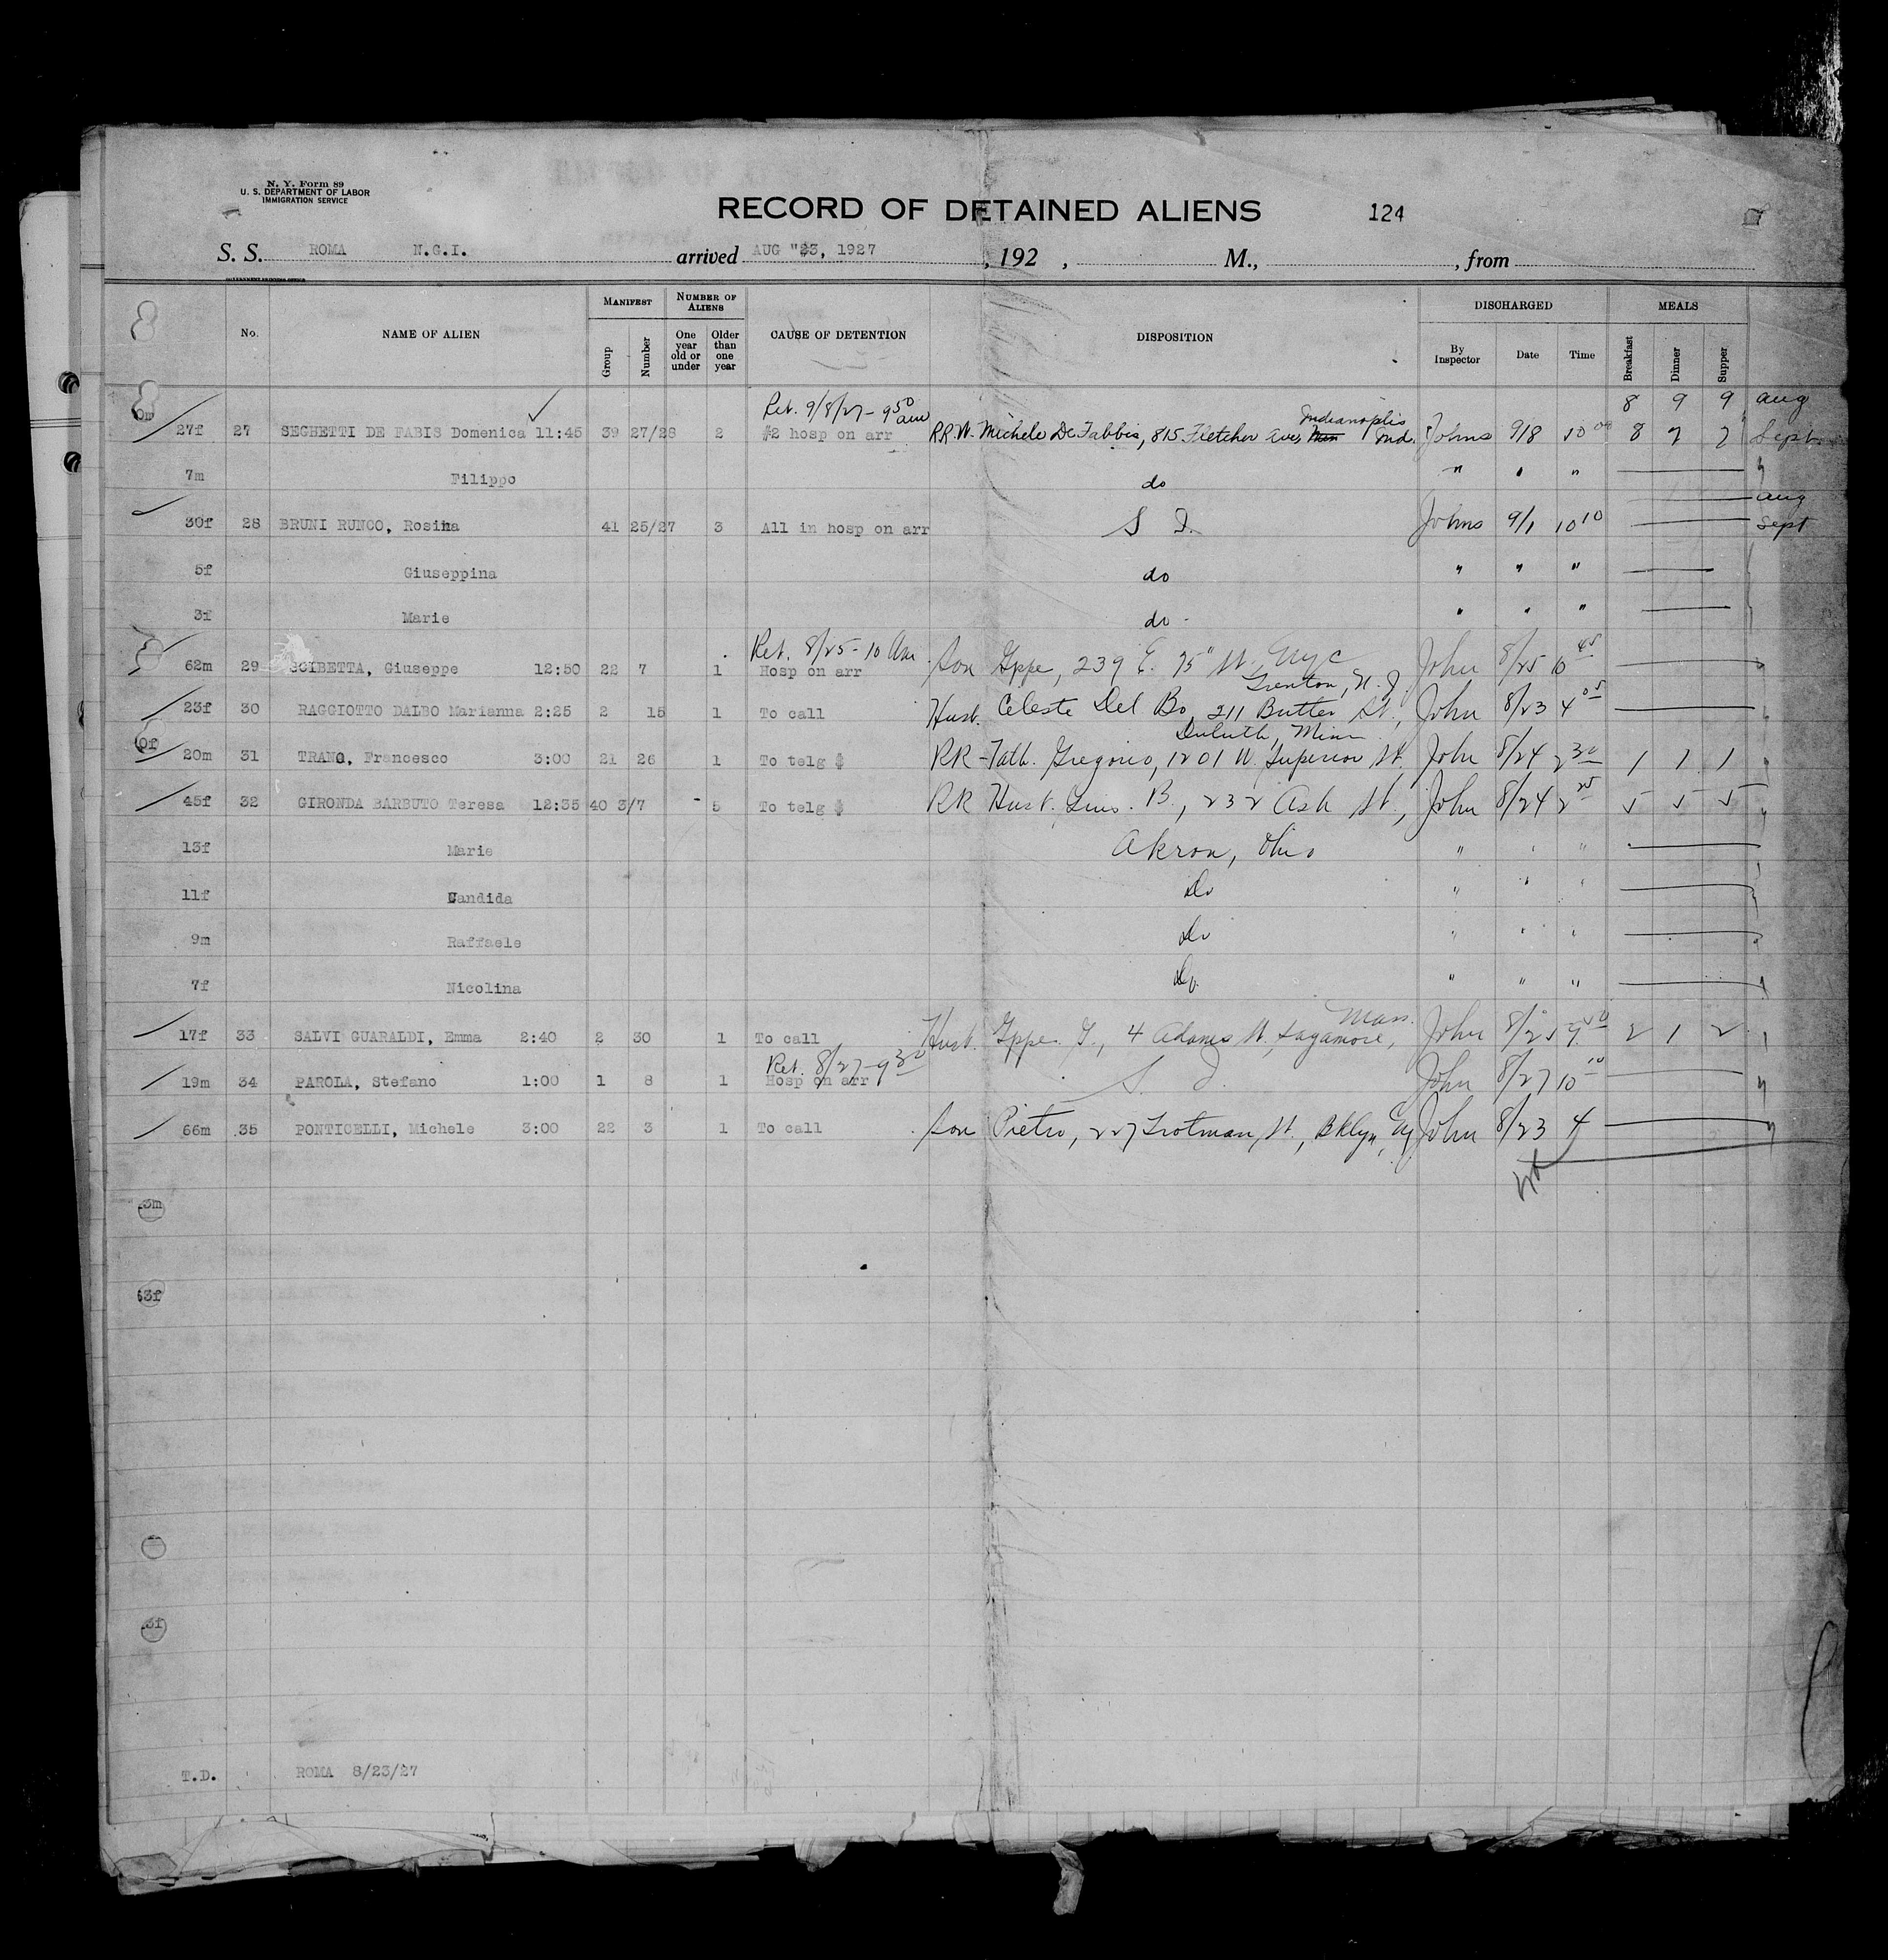 N. Y. Form 89
U. S. DEPARTMENT OF LABOR
IMMIGRATION SERVICE
RECORD OF DETAINED ALIENS 124
S. S. ROMA N.G.I. arrived AUG "23, 1927, 192 , M., , from
GOVERNMENT PRINTING OFFICE
No. NAME OF ALIEN MANIFEST Group Number NUMBER OF ALIENS One year old or under Older than one year CAUSE OF DETENTION DISPOSITION DISCHARGED By Inspector Date Time MEALS Breakfast Dinner Supper
Ret. 9/8/27 - 9 50 am Indianaplis 8 9 9 Aug
27f 27 SEGHETTI DE FABIS Domenica 11:45 39 27/28 2 #2 hosp on arr RR. W. Michele De Fabbis, 815 Fletcher Ave, Ind. Johns 9/8 10 00 8 7 7 Sept
7m Filippo do " " "
Aug
30f 28 BRUNI RUNCO, Rosina 41 25/27 3 All in hosp on arr S I. Johns 9/1 10 10 Sept
5f Giuseppina do " " "
3f Marie do " " "
Ret. 8/25 - 10 Am
62m 29 SCIBETTA, Giuseppe 12:50 22 7 1 Hosp on arr Son Gppe, 239 E. 75" St. NYC John 8/25 10 45
Trenton, N. J.
23f 30 RAGGIOTTO DALBO Marianna 2:25 2 15 1 To call Husb. Celeste Del Bo, 211 Butler St., John 8/23 4 05
Duluth, Minn
20m 31 TRANO, Francesco 3:00 21 26 1 To telg $ RR - Fath. Gregorio, 1201 W. Superior St. John 8/24 2 30 1 1 1
45f 32 GIRONDA BARBUTO Teresa 12:35 40 3/7 5 To telg $ RR Husb. Gius. B., 232 Ash St., John 8/24 2 25 5 5 5
13f Marie Akron, Ohio " " "
11f Candida Do " " "
9m Raffaele Do " " "
7f Nicolina Do. " " "
Mass.
17f 33 SALVI GUARALDI, Emma 2:40 2 30 1 To call Husb. Gppe. G., 4 Adams St., Sagamore, John 8/25 2 1 2
Ret. 8/27 - 9 30
19m 34 PAROLA, Stefano 1:00 1 8 1 Hosp on arr S. I. John 8/27 10 10
66m 35 PONTICELLI, Michele 3:00 22 3 1 To call Son Pietro, 227 Trotman St., Bklyn, Ny John 8/23 4
3m
3f
3f
T.D. ROMA 8/23/27